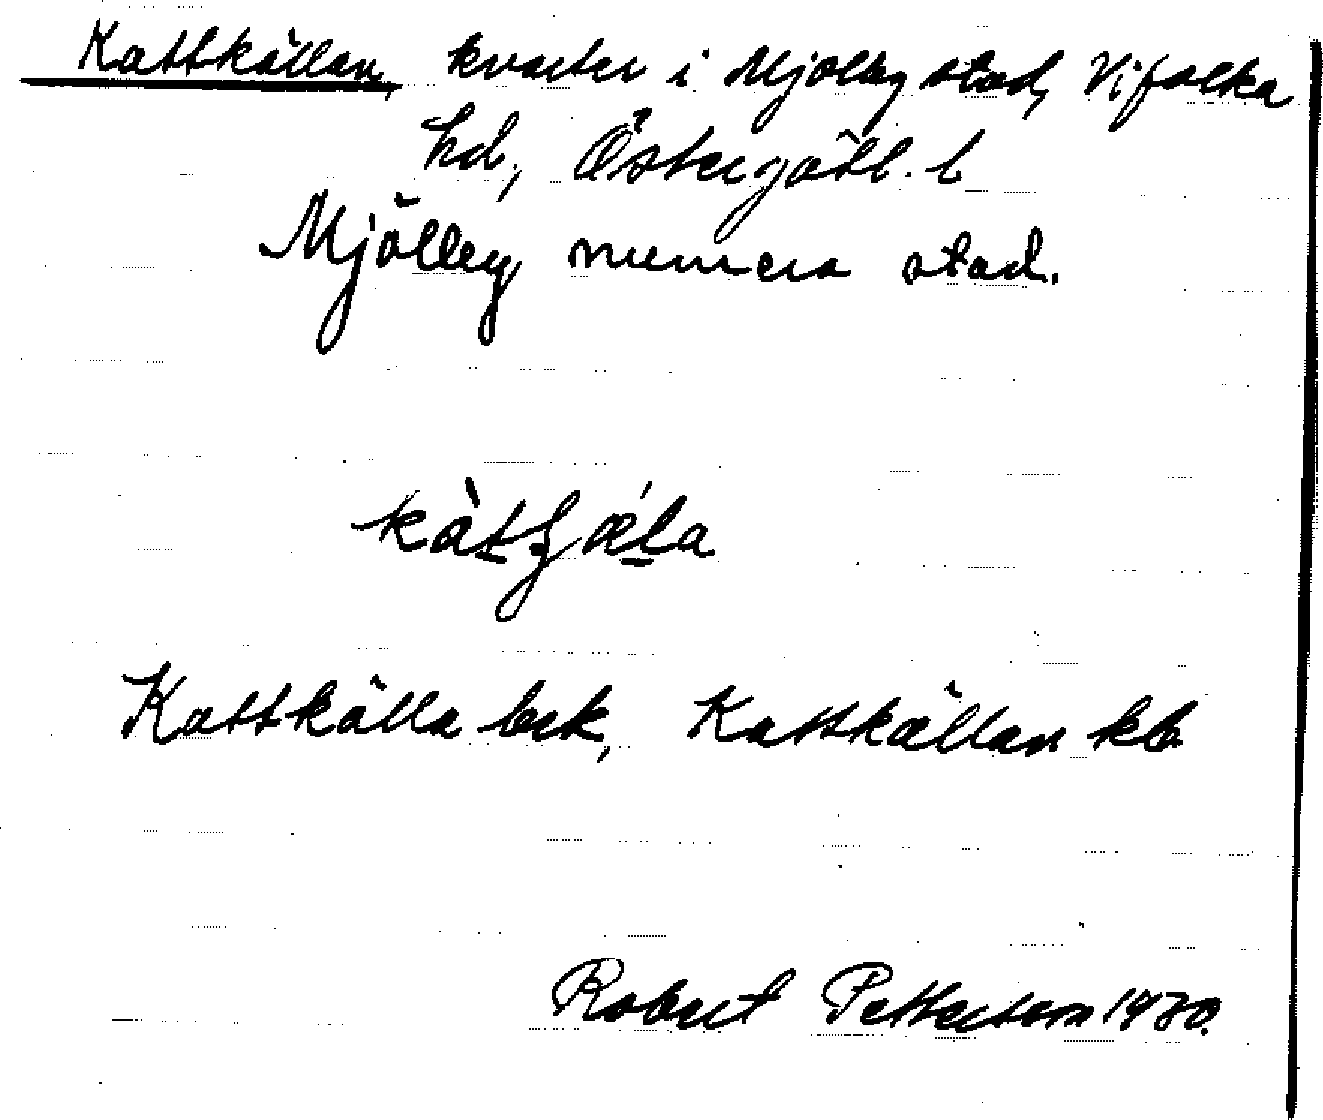 Kattkällan, kvarter i Mjölby stad, Vifolka
hd, Östergötl. l
Mjölby, numera stad.
Kattkälla bek, Kattkällan kb
Robert Pettersson 1930.